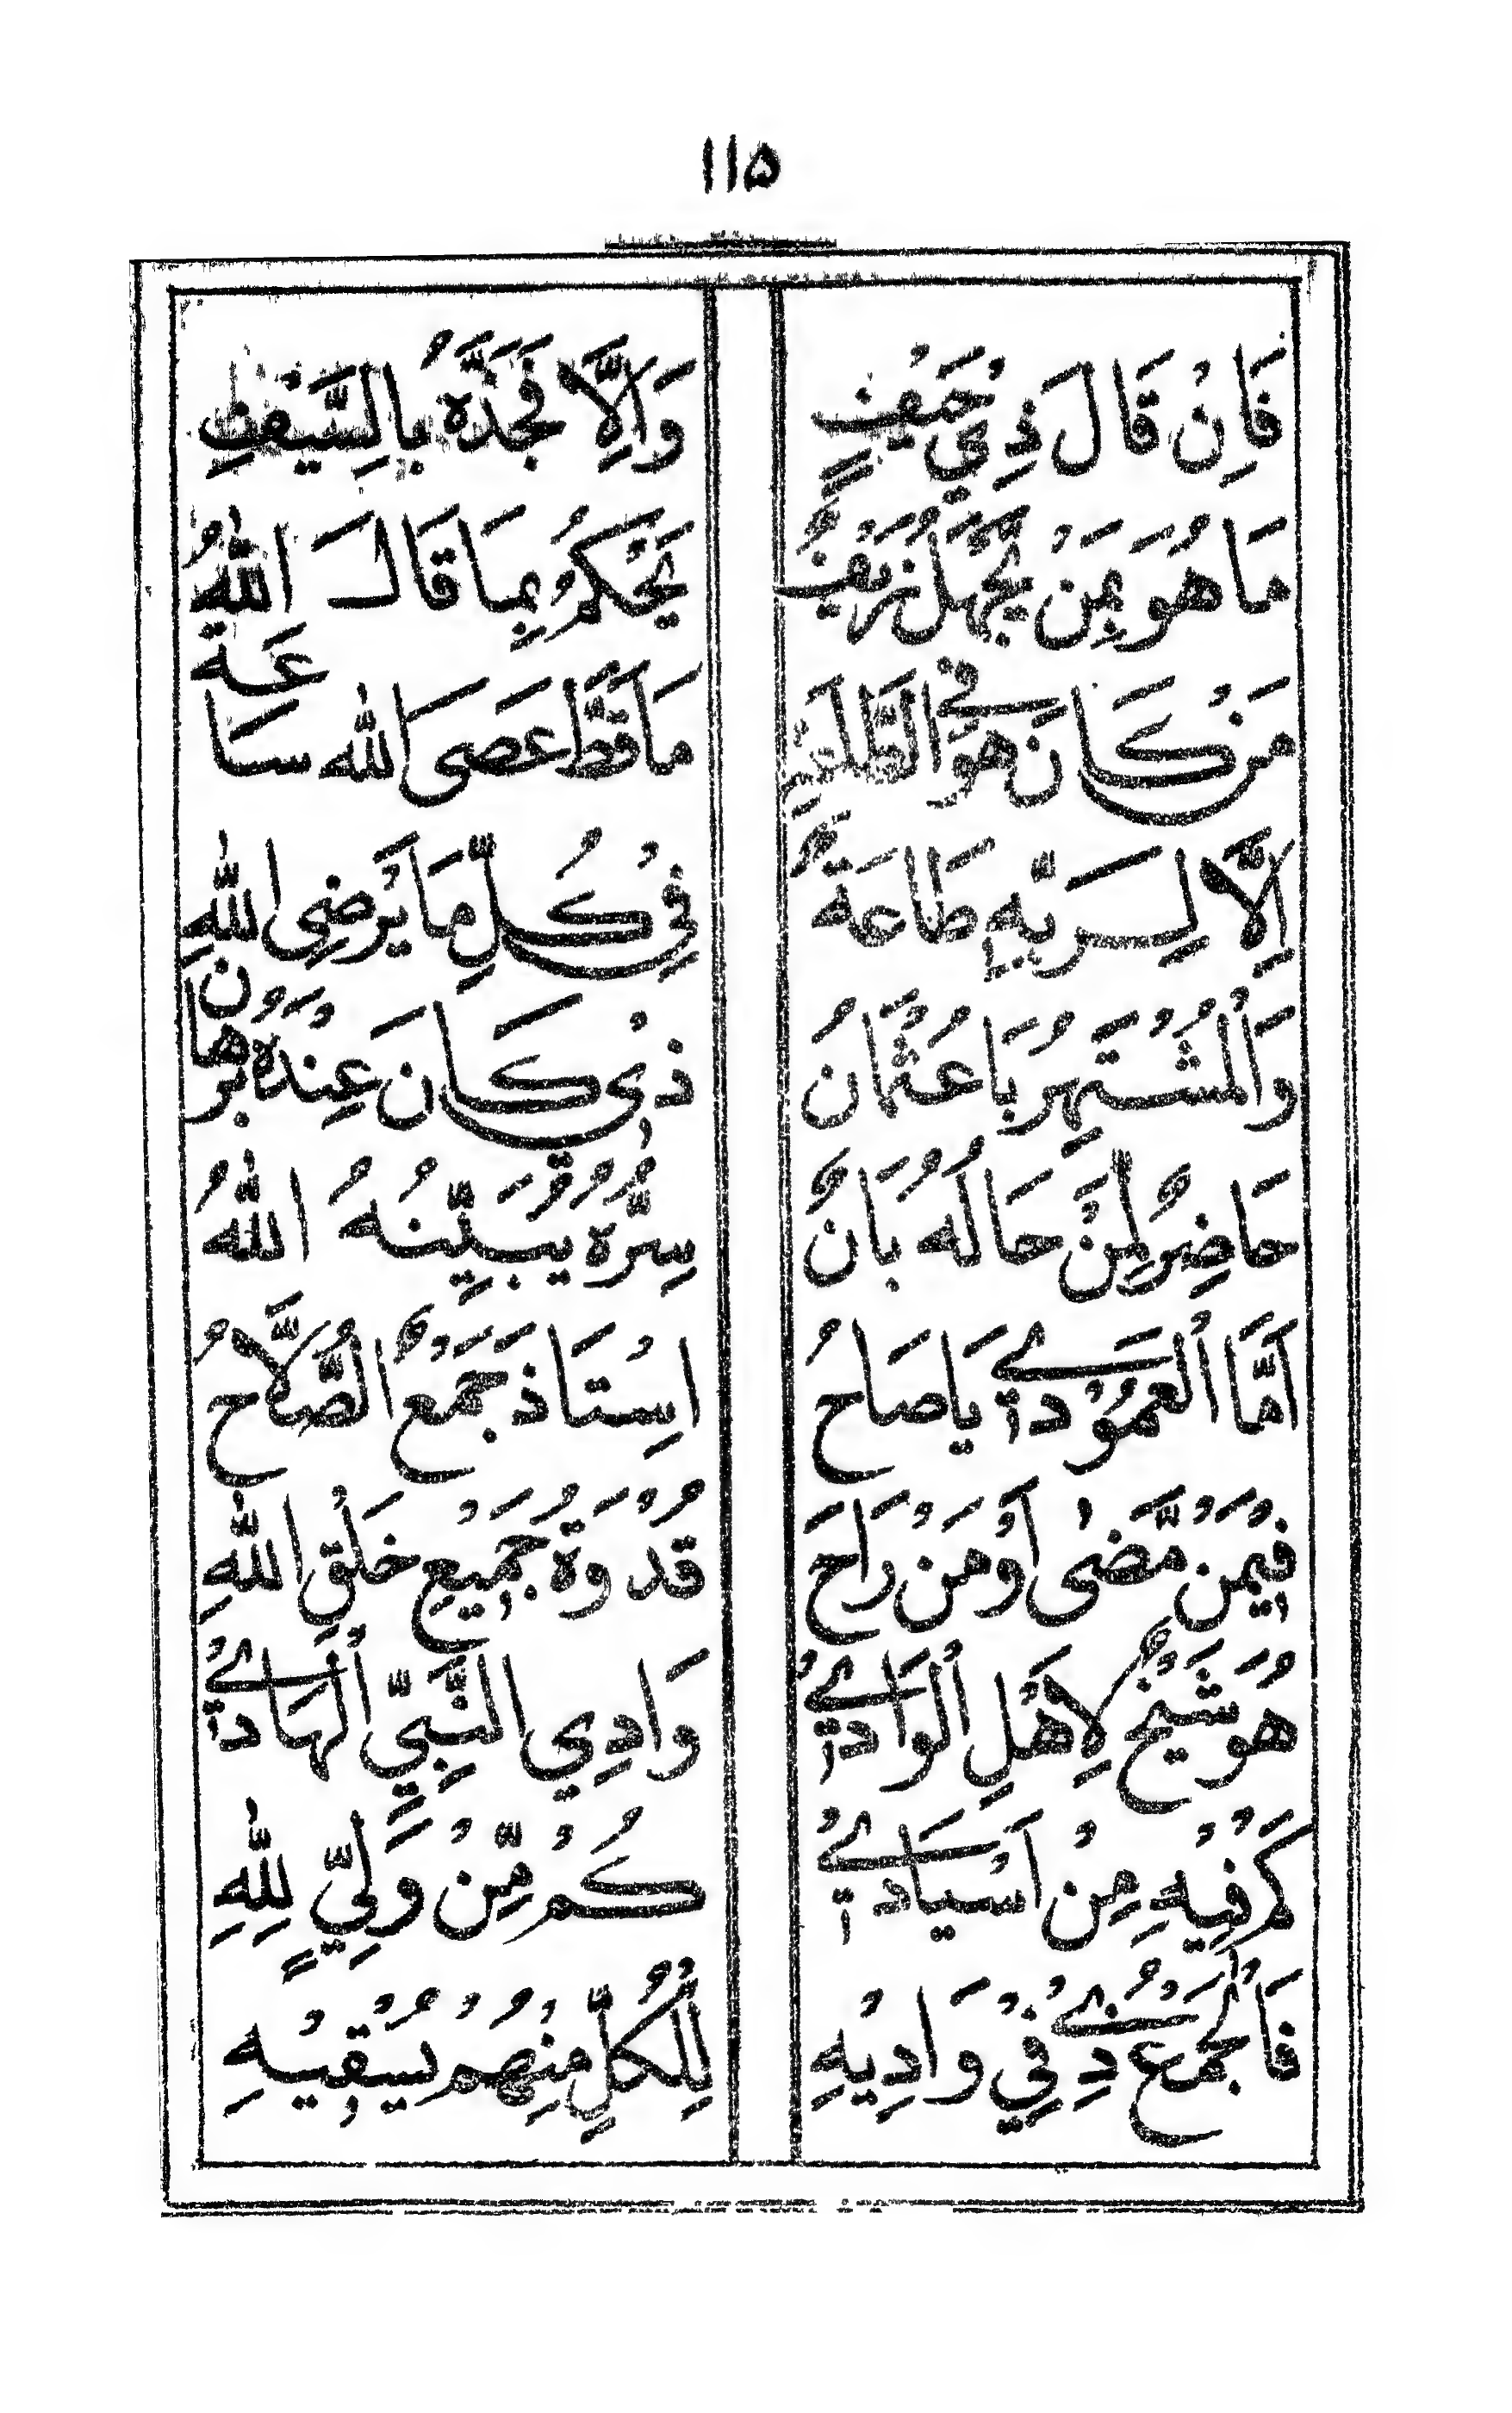 ١١۵
فَاِنْ قَالَ ذِيْ حَيْفٍ وَاِلَّا فَجَذَّهُ بِالسَّيْفِ
مَا هُوَ بِمَنْ يَجْهَلُ يَحْكُمُ بِمَا قَالَ اللهُ
مَنْ كَانَ هُوَ فِي مَا قَطَّ عَصَى اللهَ سَاعَة
اِلَّا لِرَبِّهٖ طَاعَةً فِيْ كُلِّ مَا يُرْضِي اللهِ
وَالْمُشْتَهِرْ بَا عُثْمَانُ ذِيْ كَانَ عِنْدَهُ بُرْهَانْ
حَاضِرٌ لِمَنْ حَالُهُ بَانٌ سِرُّهُ يُبَيِّنُهُ اللهُ
اَمَّا الْعَمُوْدِيْ يَا صَاحُ اِسْتَاذ جَمْعٌ الصُّلَّاحُ
فِيْمَنْ مَّضٰى اَوْ مَنْ رَاحَ قُدْوَةُ جَمِيْعِ خَلْقِ اللهِ
هُوَ شَيْخٌ لِاَهْلِ الْوَادِيْ وَادِي النَّبِيِّ الْهَادِيْ
كَمْ فِيْهِ مِنْ اَسْيَادِيْ كَمْ مِّنْ وَلِيٍّ لِلّٰهِ
فَالْجَمْعُ ذِيْ فِيْ وَادِيْهِ لِلْكُلِّ مِنْهُمْ يُسْقِيْهِ